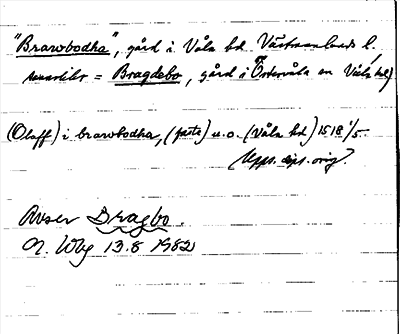 "Brawbodha", gård i Våla hd. Västmanlands l.
= Bragdebo, gård i Östervåla sn Våla hd)
(Olaff) i brawbodha, (fasta) u.o. (Våla hd) 1518 1/5.
Upps. dipl. orig.
Avser Bragbo.
N. Wbg 13.8 1982